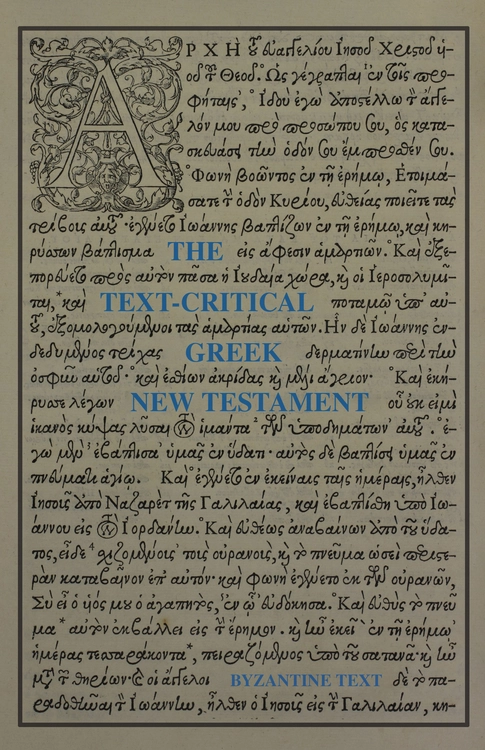 ΑΡΧΗ τοῦ εὐαγγελίου Ἰησοῦ Χριστοῦ υἱ-
οῦ τοῦ Θεοῦ. Ὡς γέγραπται ἐν τοῖς προ-
φήταις, Ἰδοὺ ἐγὼ ἀποστέλλω τὸν ἄγγε-
λόν μου πρὸ προσώπου σου, ὃς κατα-
σκευάσει τὴν ὁδόν σου ἔμπροσθέν σου.
Φωνὴ βοῶντος ἐν τῇ ἐρήμῳ, Ἑτοιμά-
σατε τὴν ὁδὸν Κυρίου, εὐθείας ποιεῖτε τὰς
τρίβους αὐτοῦ. ἐγένετο Ἰωάννης βαπτίζων ἐν τῇ ἐρήμῳ, καὶ κη-
ρύσσων βάπτισμα THE εἰς ἄφεσιν ἁμαρτιῶν. Καὶ ἐξε-
πορεύετο πρὸς αὐτὸν πᾶσα ἡ Ἰουδαία χώρα, καὶ οἱ Ἱεροσολυμῖ-
ται, καὶ TEXT-CRITICAL ποταμῷ ὑπ' αὐ-
τοῦ, ἐξομολογούμενοι τὰς ἁμαρτίας αὐτῶν. Ἦν δὲ Ἰωάννης ἐν-
δεδυμένος τρίχας GREEK δερματίνην περὶ τὴν
ὀσφὺν αὐτοῦ· καὶ ἐσθίων ἀκρίδας καὶ μέλι ἄγριον· Καὶ ἐκή-
ρυσσε λέγων NEW TESTAMENT οὗ οὐκ εἰμὶ
ἱκανὸς κύψας λῦσαι τὸν ἱμάντα τῶν ὑποδημάτων αὐτοῦ. ἐ-
γὼ μὲν ἐβάπτισα ὑμᾶς ἐν ὕδατι· αὐτὸς δὲ βαπτίσει ὑμᾶς ἐν
πνεύματι ἁγίῳ. Καὶ ἐγένετο ἐν ἐκείναις ταῖς ἡμέραις, ἦλθεν
Ἰησοῦς ἀπὸ Ναζαρὲτ τῆς Γαλιλαίας, καὶ ἐβαπτίσθη ὑπὸ Ἰω-
άννου εἰς τὸν Ἰορδάνην. Καὶ εὐθέως ἀναβαίνων ἀπὸ τοῦ ὕδα-
τος, εἶδε σχιζομένους τοὺς οὐρανοὺς, καὶ τὸ πνεῦμα ὡσεὶ περιστε-
ρὰν καταβαῖνον ἐπ' αὐτόν· καὶ φωνὴ ἐγένετο ἐκ τῶν οὐρανῶν,
Σὺ εἶ ὁ υἱός μου ὁ ἀγαπητὸς, ἐν ᾧ εὐδόκησα. Καὶ εὐθὺς τὸ πνεῦ
μα* αὐτὸν ἐκβάλλει εἰς τὴν ἔρημον. καὶ ἦν ἐκεῖ ἐν τῇ ἐρήμῳ
ἡμέρας τεσσαράκοντα*, πειραζόμενος ὑπὸ τοῦ σατανᾶ· καὶ ἦν
μετὰ τῶν θηρίων· καὶ οἱ ἄγγελοι BYZANTINE TEXT δὲ τὸ πα-
ραδοθῆναι τὸν Ἰωάννην, ἦλθεν ὁ Ἰησοῦς εἰς τὴν Γαλιλαίαν, κη-